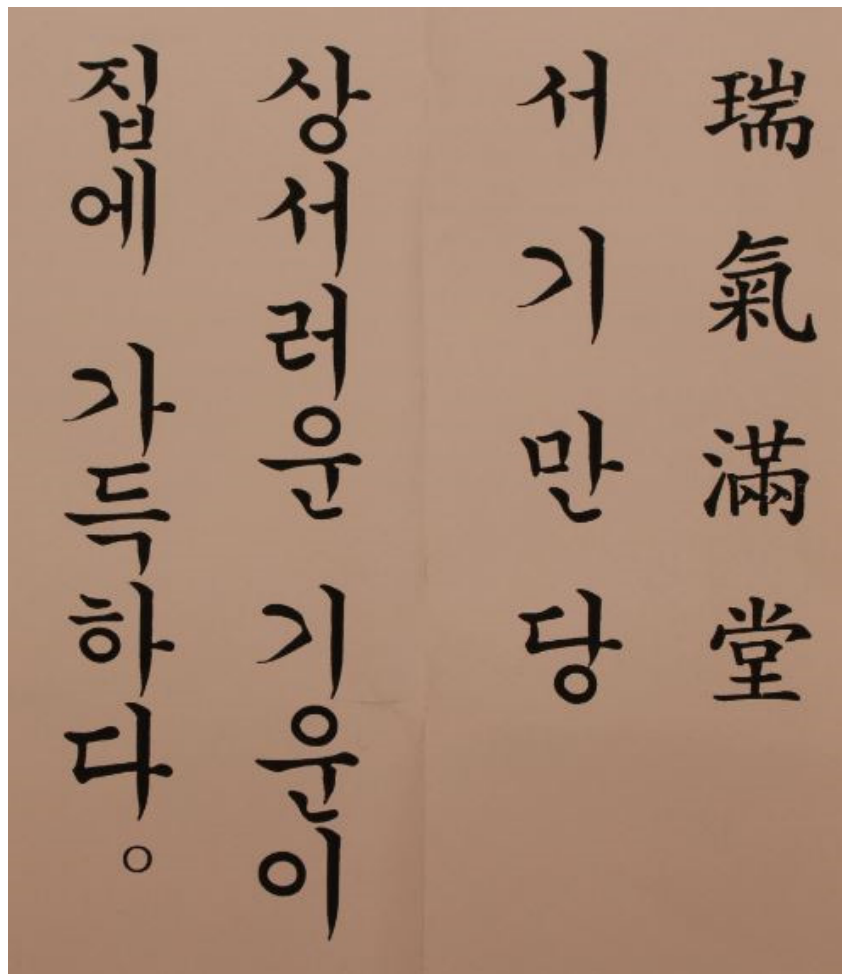 瑞氣滿堂
서기만당
상서러운 기운이
집에 가득하다。